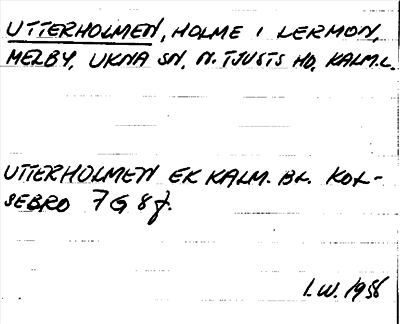 UTTERHOLMEN, HOLME I LERMON,
MELBY, UKNA SN, N. TJUSTS HD, KALM.L.
UTTERHOLMEN EK KALM. BL. KOL-
SEBRO 7 G 8 f.
I.W. 1956